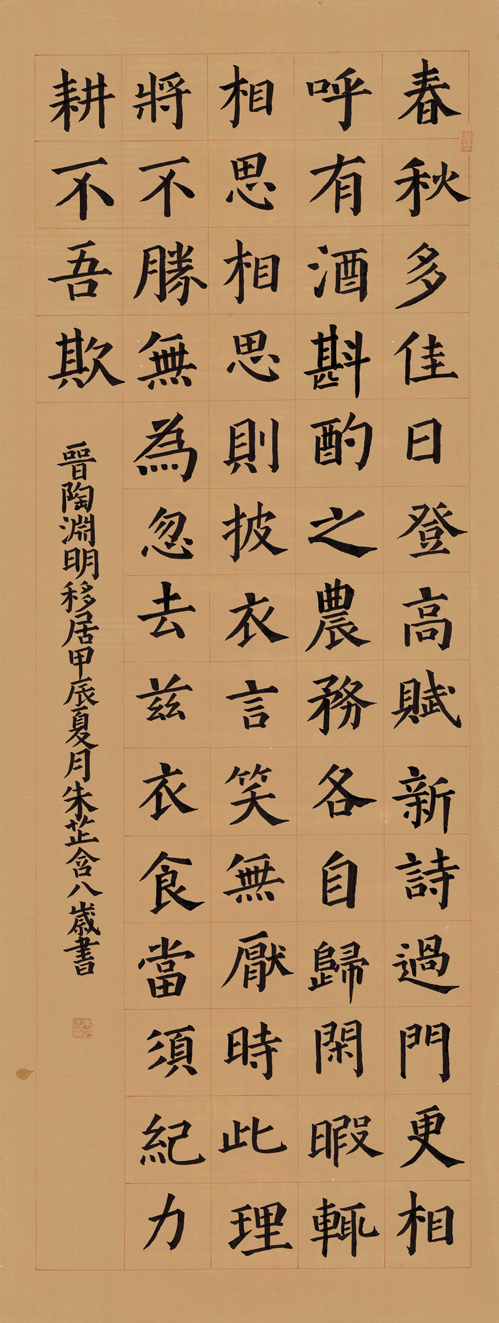 春秋多佳日登高賦新詩過門更相
呼有酒斟酌之農務各自歸閑暇輒
相思相思則披衣言笑無厭時此理
將不勝無為忽去茲衣食當須紀力
耕不吾欺
晉陶淵明移居甲辰夏月朱芷含八歲書